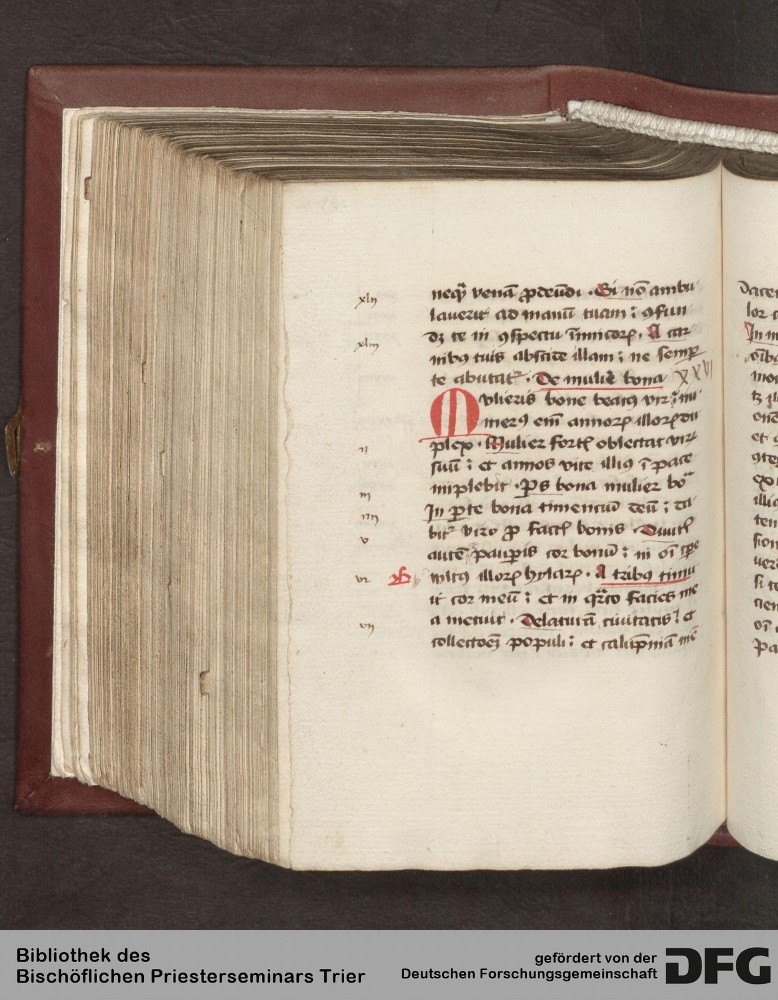 xlij
neq3 venā ꝓdeūdi . Si nō ambu
lauerit ad manū tuam ; ꝯfun
xliij
d3 te in ꝯspectu īimicoꝝ . A car
nibꝰ tuis abscide illam ; ne semꝑ
te abutat᷒ . De mulie bona XXVI
Mulieris bone beatꝰ vir ; nu
merꝰ em annoꝝ illoꝝ du
ij
plex . Mulier fort᷒ oblectat virū
suū ; et annos vite illiꝰ ī pace
implebit . Ps bona mulier bo
iij
In ꝑte bona timenciū deū ; da
iiij
bit᷒ viro ꝓ fact᷒ bonis . Diuit᷒
v
autē pauꝑis cor bonū ; in oī tꝑe
vi
vultꝰ illoꝝ hylaꝝ . A tribꝰ timu
it cor meū ; et in q̄rto facies me
a metuit . Delaturā ciuitatis ; et
vij
collectoē3 populi ; et calūpniā mē
Bibliothek des
Bischöflichen Priesterseminars Trier
gefördert von der
Deutschen Forschungsgemeinschaft
DFG